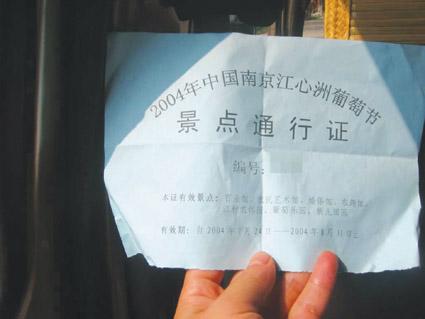 2004年中国南京江心洲葡萄节
景点通行证
编号:
本证有效景点:
有效期: 自2004年7月24日——2004年8月